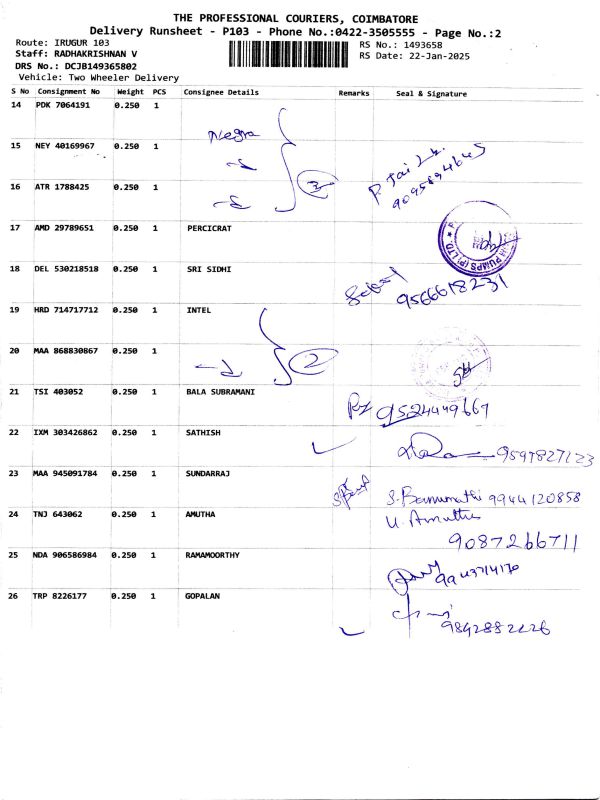 THE PROFESSIONAL COURIERS, COIMBATORE
Delivery Runsheet - P103 - Phone No.:0422-3505555 - Page No.:2
Route: IRUGUR 103
RS No.: 1493658
Staff: RADHAKRISHNAN V
RS Date: 22-Jan-2025
DRS No.: DCJB149365802
Vehicle: Two Wheeler Delivery
S No Consignment No Weight PCS Consignee Details Remarks Seal & Signature
14 PDK 7064191 0.250 1
15 NEY 40169967 0.250 1
16 ATR 1788425 0.250 1 3
17 AMD 29789651 0.250 1 PERCICRAT
18 DEL 530218518 0.250 1 SRI SIDHI
9566618231
19 HRD 714717712 0.250 1 INTEL
20 MAA 868830867 0.250 1 2
21 TSI 403052 0.250 1 BALA SUBRAMANI
9524449667
22 IXM 303426862 0.250 1 SATHISH
9597827123
23 MAA 945091784 0.250 1 SUNDARRAJ
S. Banumathi 9944120858
24 TNJ 643062 0.250 1 AMUTHA U. Amutha
9087266711
25 NDA 906586984 0.250 1 RAMAMOORTHY
26 TRP 8226177 0.250 1 GOPALAN